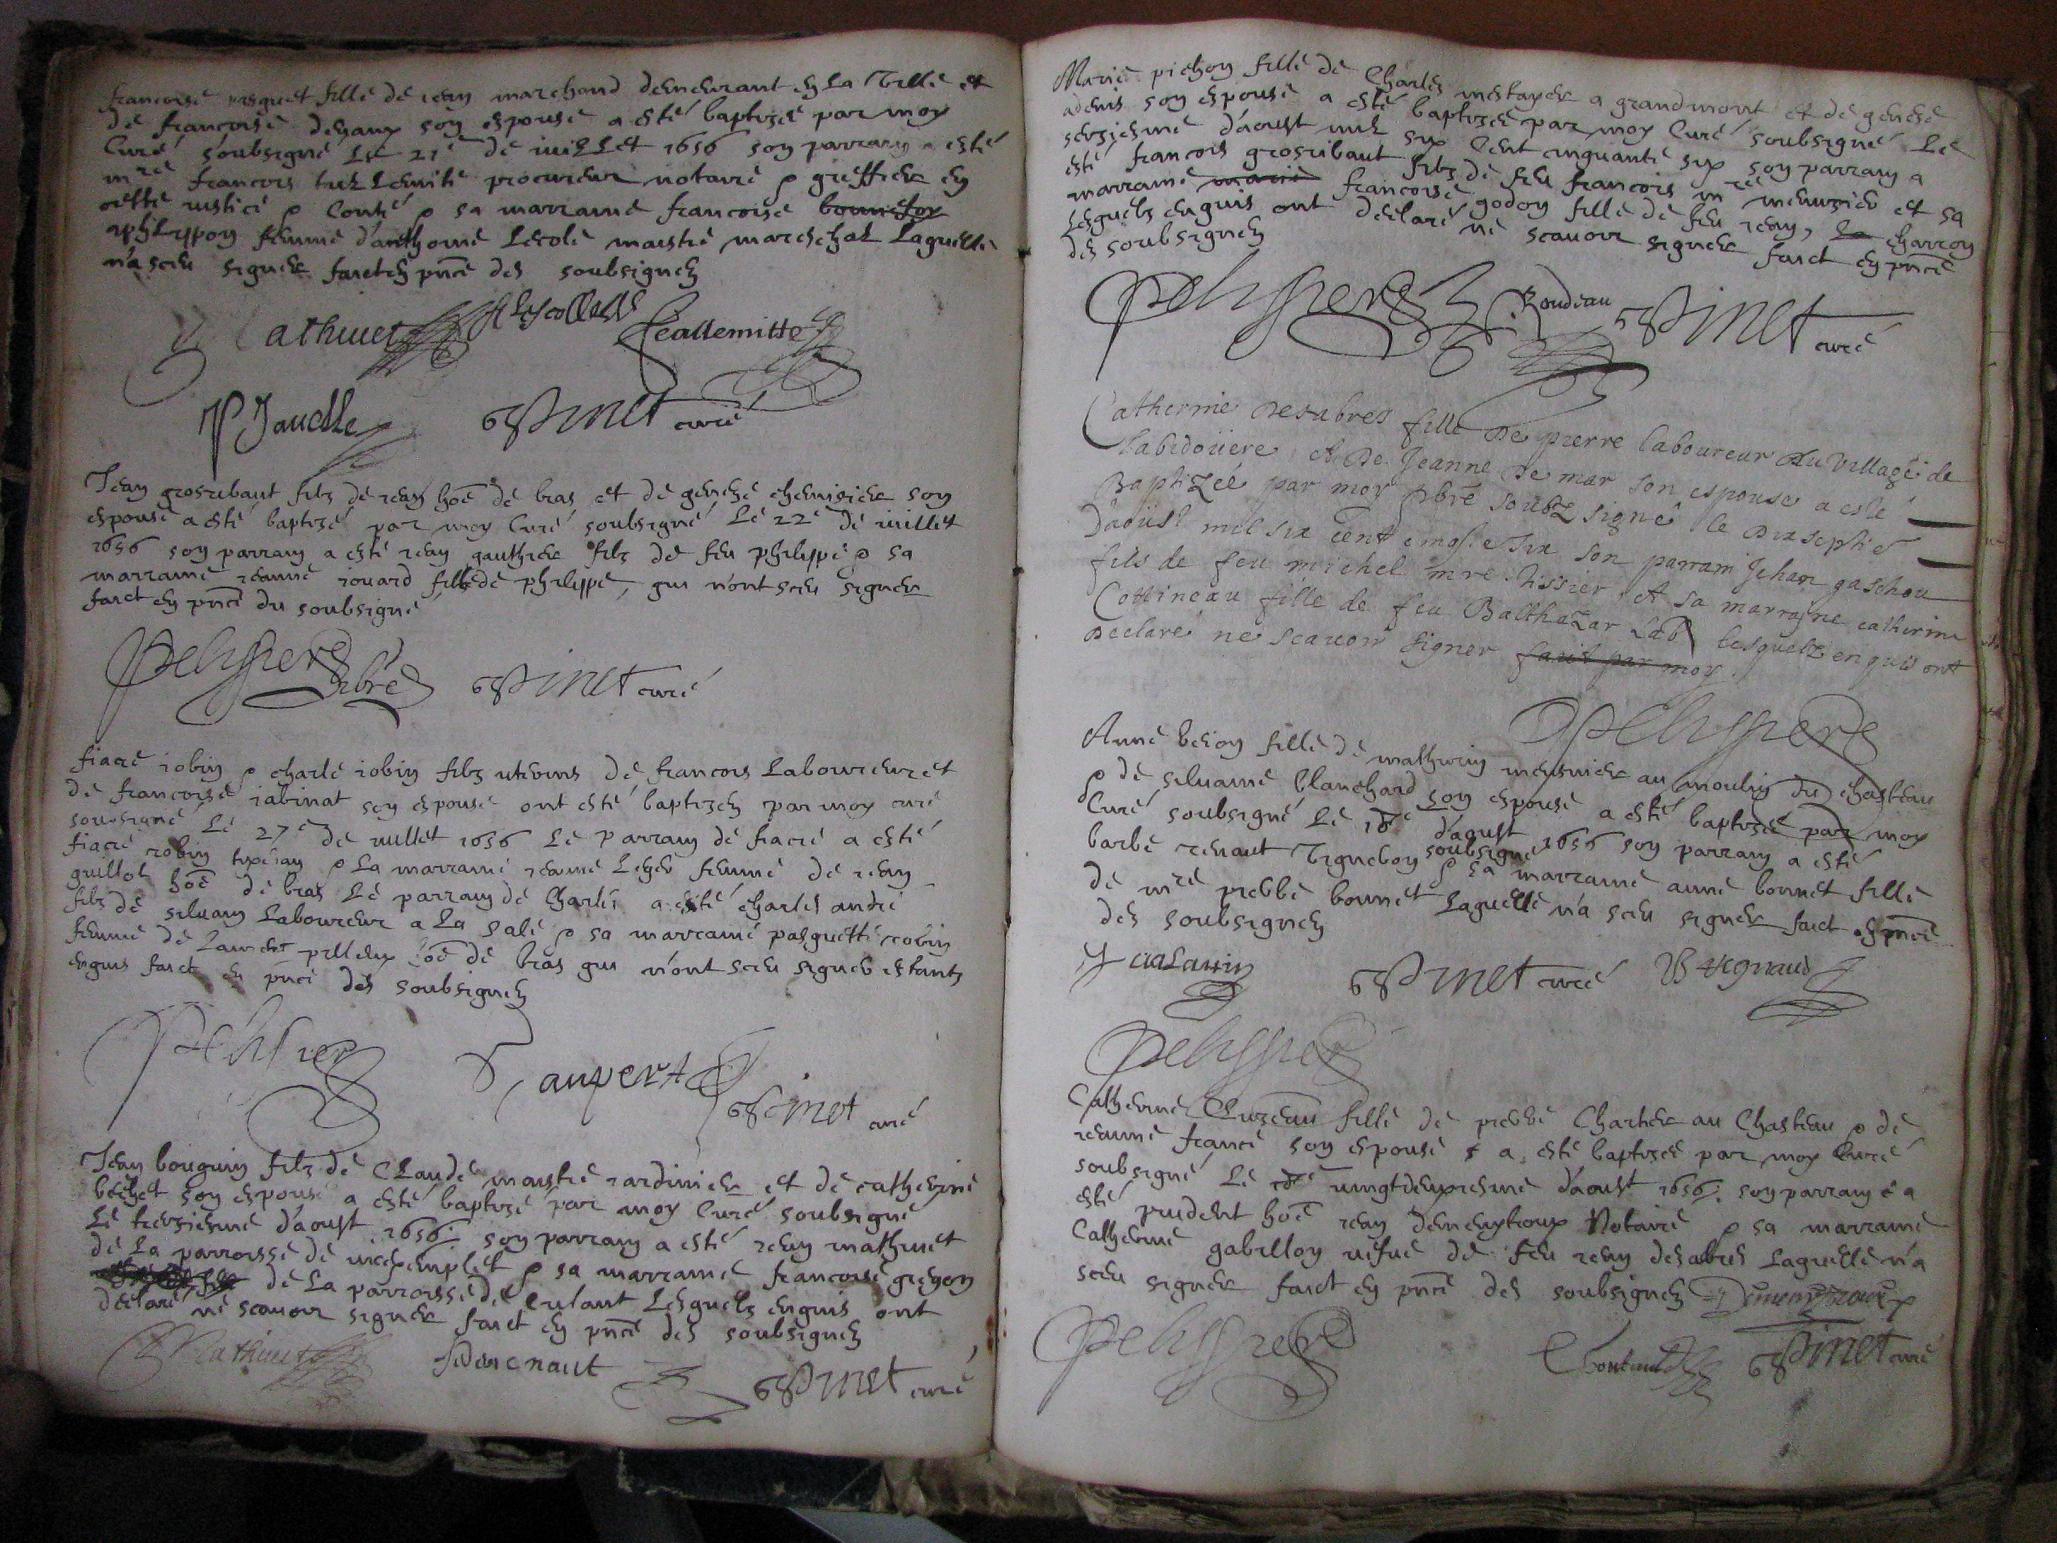 francoise pasquet fille de jean marchand demeurant en la ville et
de francoise desaux son espouse a esté baptizee par moy
Curé soubsigné le 21e de juillet 1656 son parrain a esté
mre francois procureur notaire & greffier en
cette justice & & sa marraine francoise
philippon femme d'anthoine lecole maistre mareschal laquelle
n'a sceu signer faict en pnce des soubsignez
Mathuret Lescolle Lallemitte
P Jauelle Pinet curé
Jean grosribaut filz de jean hoe de bras et de genese chemisier son
espouse a esté baptizé par moy Curé soubsigné le 22e de juillet
1656 son parrain a esté jean gauthier filz de feu philippe & sa
marraine jeanne jouard fille de philippe, qui n'ont sceu signer
faict en pnce du soubsigné
Pelissiere pbre Pinet curé
fiacre robin & charle robin filz uterins de francois laboureur et
de francoise jabinat son espouse ont esté baptizez par moy curé
soubsigné le 27e de juillet 1656 le parrain de fiacre a esté
fiacre robin & la marraine jeanne leger femme de jean
guillot hoe de bras le parrain de charles a esté charles andré
filz de siluain laboureur a la sale & sa marraine pasquette robin
femme de laurent hoe de bras qui n'ont sceu signer estants
enquis faict en pnce des soubsignez
Pelissier aupert Pinet curé
Jean bouguin filz de Claude maistre jardinier et de catherine
bechet son espouse a esté baptizé par moy Curé soubsigné
le treziesme d'aoust 1656 son parrain a esté jean mathuret
de la parroisse de & sa marraine francoise
de la parroisse de lesquelz enquis ont
declaré ne scauoir signer faict en pnce des soubsignez
Mathuret Pinet curé
Marie pichon fille de Charles mestayer a grandmont et de genese
adenis son espouse a esté baptizee par moy Curé soubsigné le
seziesme d'aoust mil six cent cinquante six son parrain a
esté francois grosribaut filz de feu francois mre menuzier et sa
marraine marie francoise godon fille de feu jean, charron
lesquelz enquis ont declaré ne scauoir signer faict en pnce
des soubsignez
Pelissiere Rondeau Pinet curé
Catherine Desabres fille de pierre laboureur du village de
labidoüere et De Jeanne De mar son espouse a esté
Baptizéé par moy pbre soubz signé le Dixseptie
D'aoust mil six cent cinq. e six son parrain Jehan gaschou
fils de feu michel mre tissier et sa marrayne catherine
Cottineau fille de feu Balthazar Lab lesquelz enquis ont
Declaré ne scauoir signer faict par moy
Pelissiere
Anne berion fille de mathurin meusnier au moulin du chasteau
& de siluaine blanchard son espouse a esté baptizee par moy
Curé soubsigné le 18e d'aoust 1656 son parrain a esté
barbe renaut vigneron soubsigné & sa marraine anne bonnet fille
de mre pierre bonnet laquelle n'a sceu signer faict en pnce
des soubsignez
Pinet curé B regnaud
Pelissier
Catherine Cluzeau fille de pierre Chartier au Chasteau & de
jeanne france son espouse a esté baptizee par moy Curé
soubsigné le vingtdeuxiesme d'aoust 1656. son parrain a
esté prudent hoe jean demeuxtroux Notaire & sa marraine
Catherine gabillon vefue de feu jean desabres laquelle n'a
sceu signer faict en pnce des soubsignez
Pelissiere Pinet curé